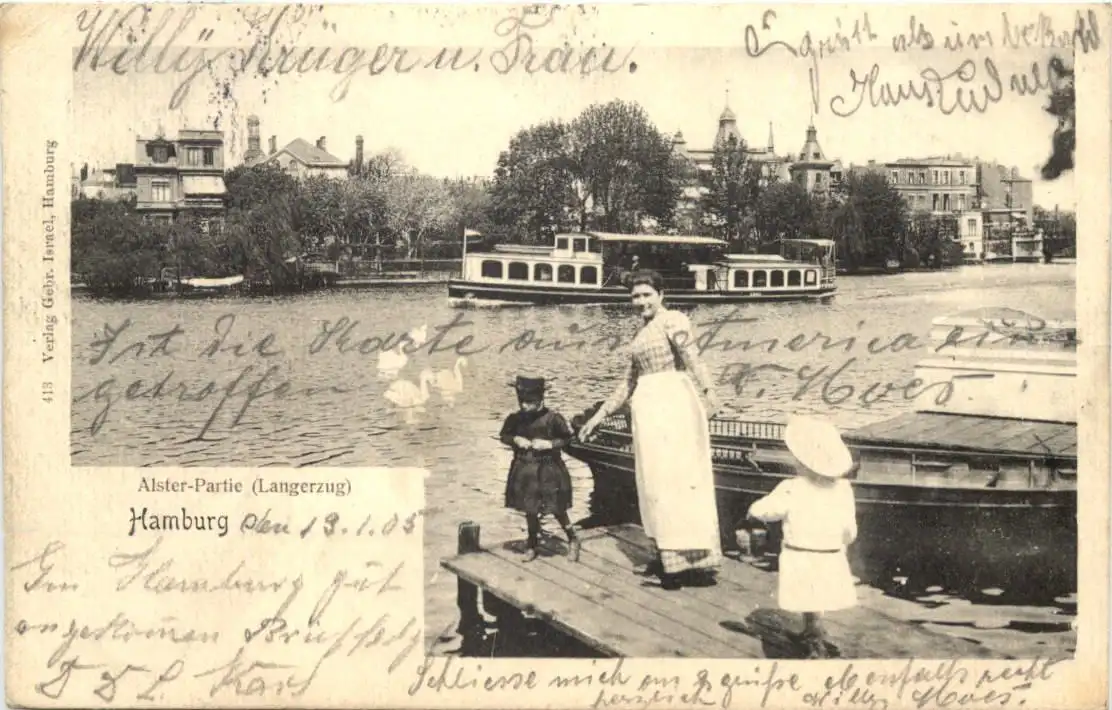 Willy Krüger u. Frau.
Es grüßt als unbekannt
Hans
413 Verlag Gebr. Israel, Hamburg
Ist die Karte aus America ein
getroffen W. Hoes
Alster-Partie (Langerzug)
Hamburg den 13.1.05
In Hamburg gut
angekommen Brief folgt
D D L Karl
Schliesse mich an & grüße ebenfalls recht
herzlich Willy Hoes.